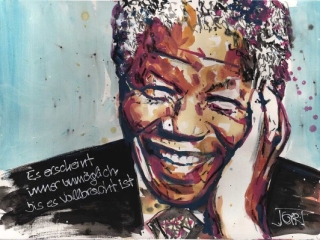 Es erscheint
immer unmöglich
bis es vollbracht ist